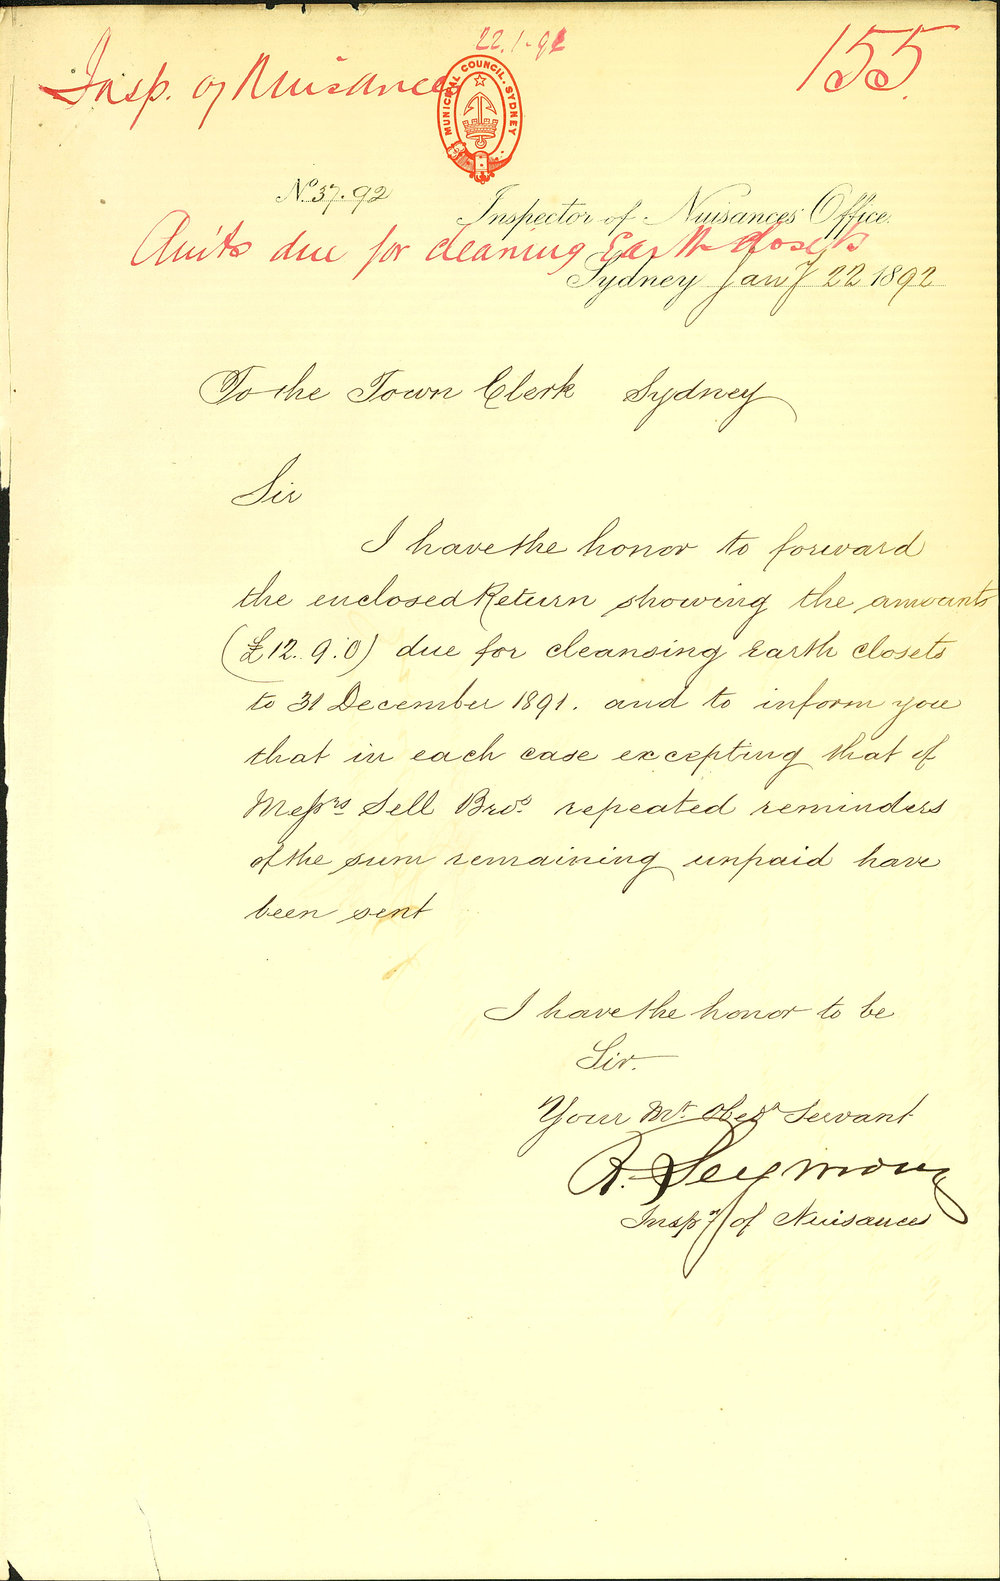 22.1.92
155.
Insp. of Nuisances
MUNICIPAL COUNCIL. SYDNEY
No. 37.92
Inspector of Nuisances Office.
Amts due for cleaning Earth closets
Sydney Jany 22 1892
To the Town Clerk Sydney
Sir
I have the honor to forward
the enclosed Return showing the amounts
(£12..9.0) due for cleansing Earth closets
to 31 December 1891. and to inform you
that in each case excepting that of
Messrs Sell Bros. repeated reminders
of the sum remaining unpaid have
been sent
I have the honor to be
Sir.
Your Mt. Obedt Servant
R. Seymour
Inspr of Nuisances